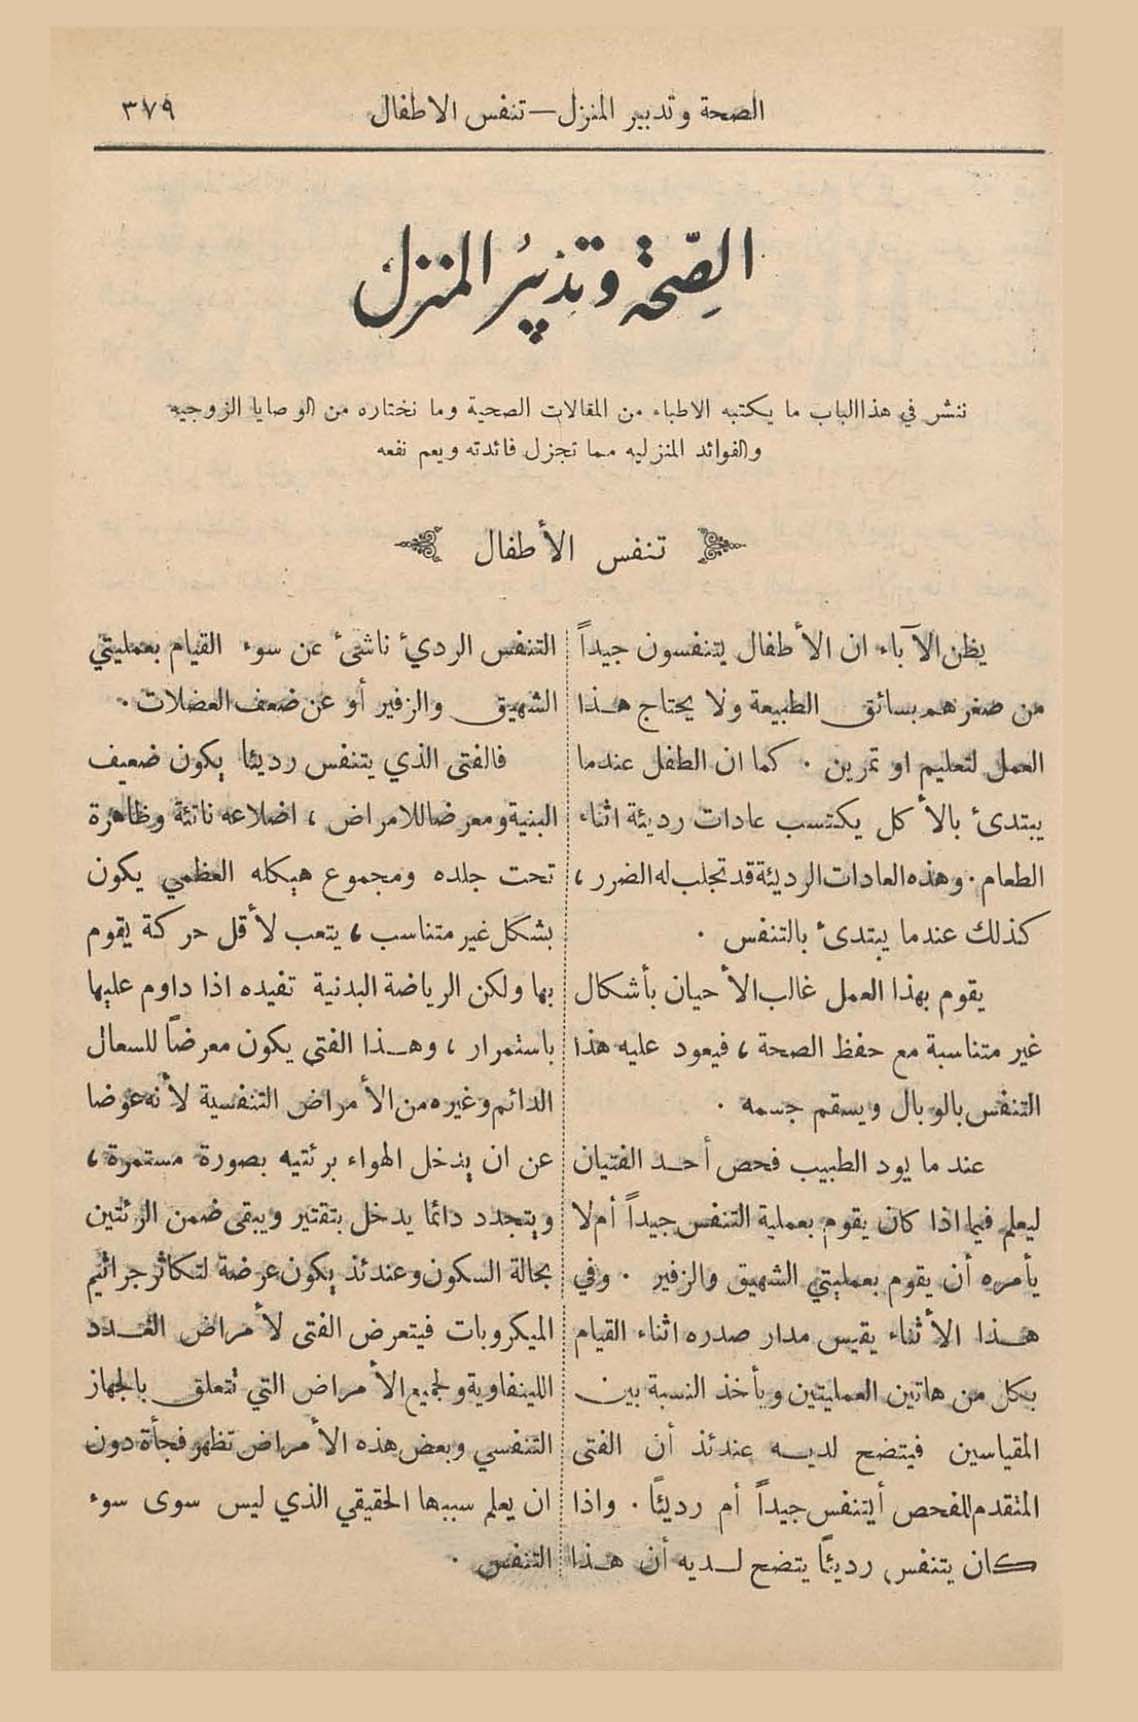 الصحة وتدبير المنزل — تنفس الاطفال
٣٧٩
الصِّحة وتدبيرُ المنزل
ننشر في هذا الباب ما يكتبه الاطباء من المقالات الصحية وما نختاره من الوصايا الزوجيه
والفوائد المنزليه مما تجزل فائدته ويعم نفعه
تنفس الأطفال
يظن الآباء ان الأطفال يتنفسون جيداً
من صغرهم بسائق الطبيعة ولا يحتاج هذا
العمل لتعليم او تمرين . كما ان الطفل عندما
يبتدئ بالأكل يكتسب عادات رديئة اثناء
الطعام . وهذه العادات الرديئة قد تجلب له الضرر ،
كذلك عندما يبتدئ بالتنفس .
يقوم بهذا العمل غالب الأحيان بأشكال
غير متناسبة مع حفظ الصحة ، فيعود عليه هذا
التنفس بالوبال ويسقم جسمه .
عند ما يود الطبيب فحص أحد الفتيان
ليعلم فيما اذا كان يقوم بعملية التنفس جيداً أم لا
يأمره أن يقوم بعمليتي الشهيق والزفير . وفي
هذا الأثناء يقيس مدار صدره اثناء القيام
بكل من هاتين العمليتين ويأخذ النسبة بين
المقياسين فيتضح لديه عندئذ أن الفتى
المتقدم للفحص أيتنفس جيداً أم رديئاً . واذا
كان يتنفس رديئاً يتضح لديه أن هذا
التنفس الرديء ناشئ عن سوء القيام بعمليتي
الشهيق والزفير أو عن ضعف العضلات .
فالفتى الذي يتنفس رديئا يكون ضعيف
البنية ومعرضا للامراض ، اضلاعه ناتئة وظاهرة
تحت جلده ومجموع هيكله العظمي يكون
بشكل غير متناسب ، يتعب لأقل حركة يقوم
بها ولكن الرياضة البدنية تفيده اذا داوم عليها
باستمرار ، وهذا الفتى يكون معرضاً للسعال
الدائم وغيره من الأمراض التنفسية لأنه عوضا
عن ان يدخل الهواء برئتيه بصورة مستمرة ،
ويتجدد دائما يدخل بتقتير ويبقى ضمن الرئتين
بحالة السكون وعندئذ يكون عرضة لتكاثر جراثيم
الميكروبات فيتعرض الفتى لأمراض الغدد
اللينفاوية ولجميع الأمراض التي تتعلق بالجهاز
التنفسي وبعض هذه الأمراض تظهر فجأة دون
ان يعلم سببها الحقيقي الذي ليس سوى سوء
التنفس .